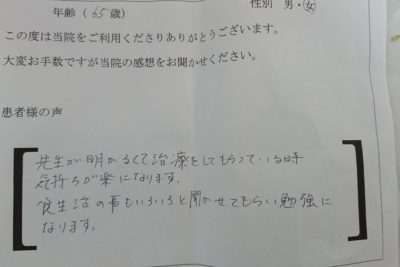 年齢（65歳）　性別　男・女
この度は当院をご利用くださりありがとうございます。
大変お手数ですが当院の感想をお聞かせください。
患者様の声
先生が明かるくて治療をしてもらっている時
気持ちが楽になります。
食生活の事もいろいろと聞かせてもらい勉強に
なります。